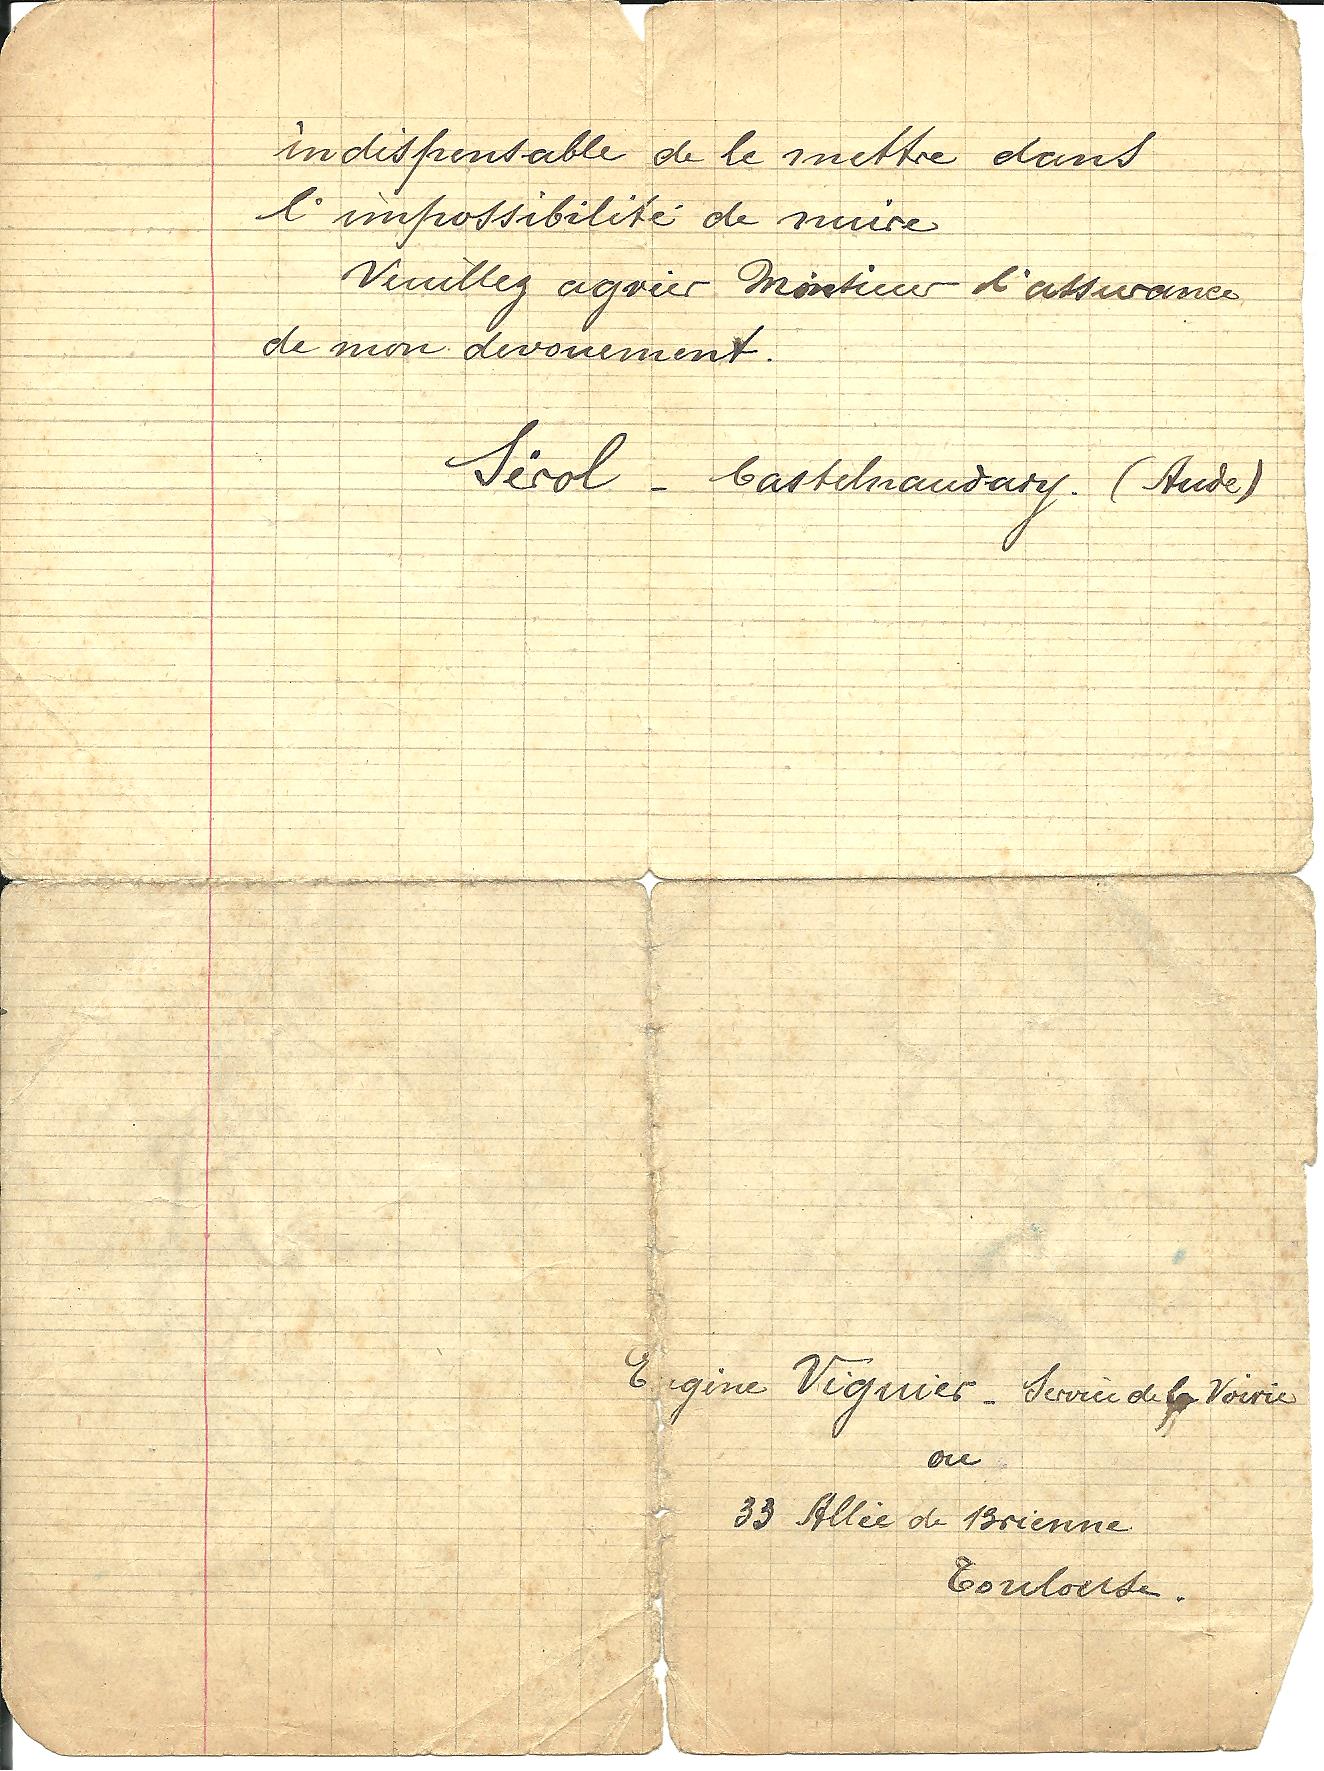 indispensable de le mettre dans
l'impossibilité de nuire
Veuillez agréer Monsieur l'assurance
de mon devouement.
Sérol - Castelnaudary. (Aude)
E gène Viguier - Service de la Voirie
ou
33 Allée de Brienne
Toulouse.